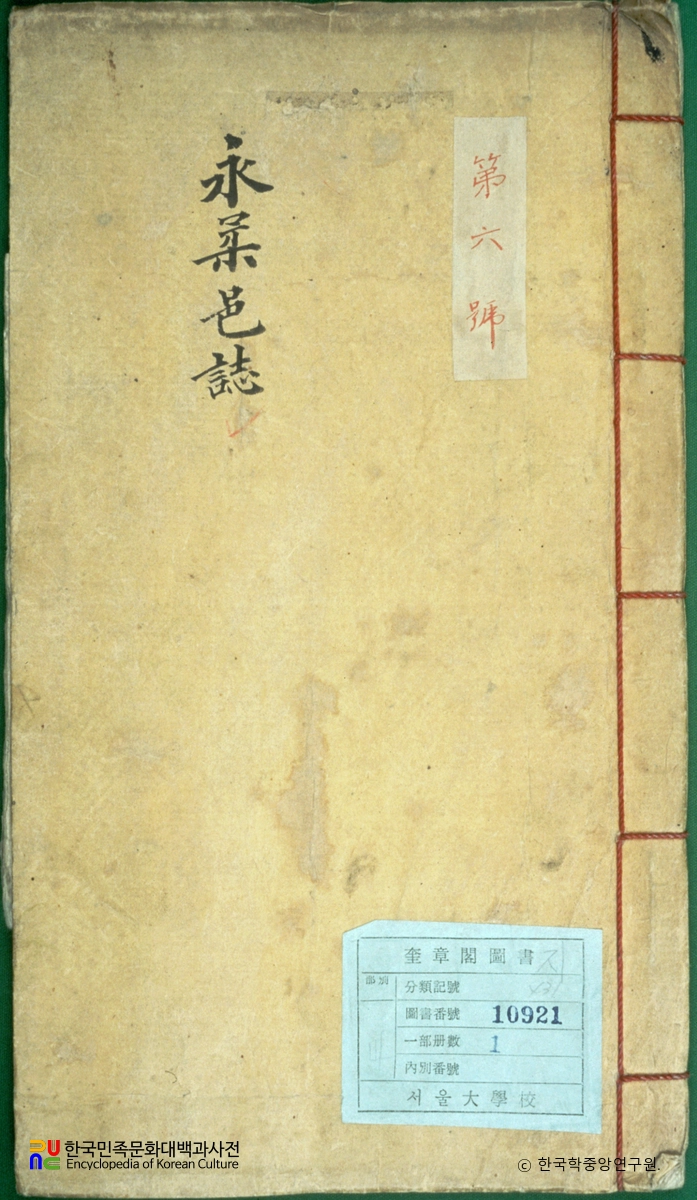 第六號
永柔邑誌
奎章閣圖書
部別
分類記號
圖書番號 10921
一部册數 1
內別番號
서울大學校
한국민족문화대백과사전
Encyclopedia of Korean Culture
© 한국학중앙연구원.